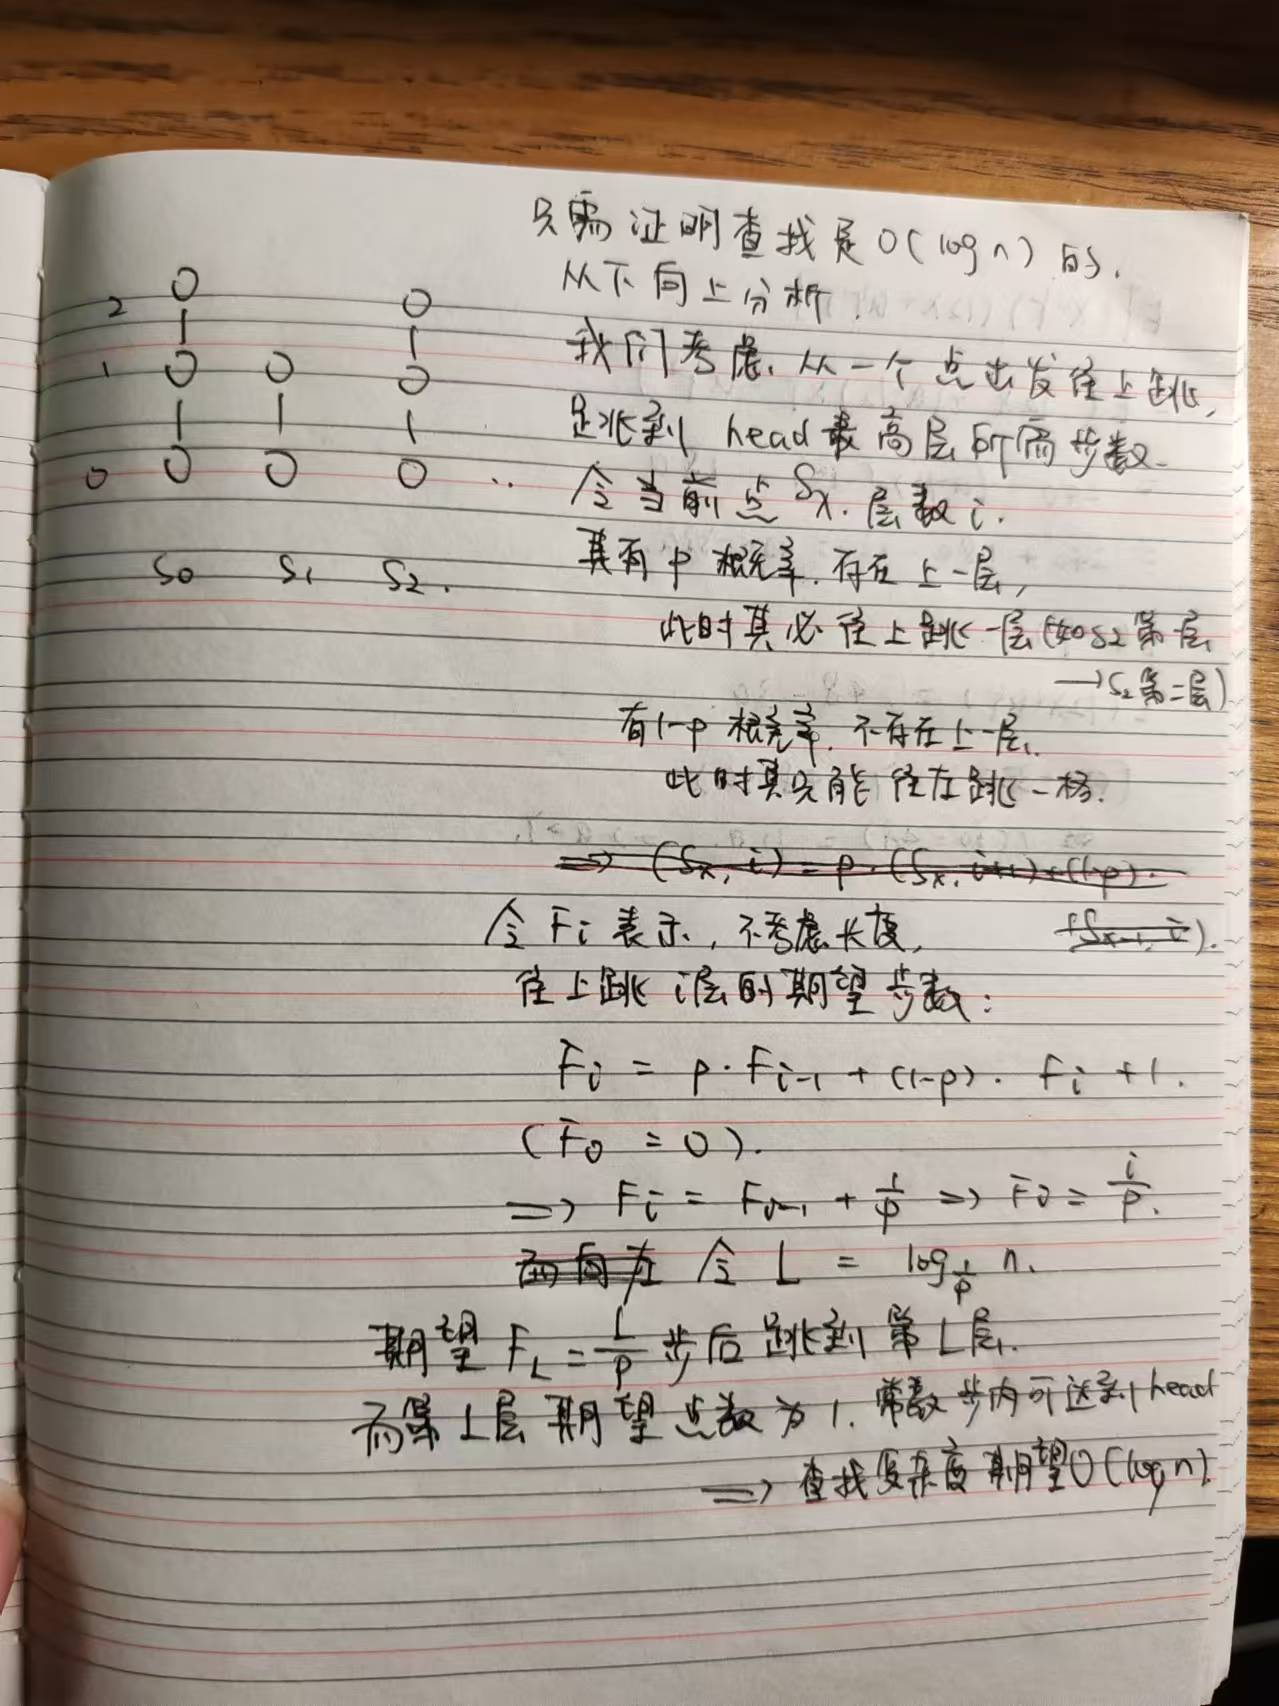 只需证明查找是O(log n)的.
从下向上分析.
我们考虑.从一个点出发往上跳,
跳到 head 最高层所需步数.
令当前点 Sx. 层数 i.
其有 p 概率.存在上一层,
此时其必往上跳一层(如S2第一层
→S2第二层)
有1-p 概率.不存在上一层.
此时其只能往左跳一格.
⇒ (Sx, i) = p·(Sx, i+1)+(1-p)·
(Sx-1, i).
令 Fi 表示,不考虑长度,
往上跳 i层的期望步数:
Fi = p·Fi-1 + (1-p)· Fi +1.
(F0 = 0).
⇒ Fi = Fi-1 + 1/p ⇒ Fi = i/p.
令 L = log1/p n.
期望 FL = L/p 步后跳到第L层.
而第L层期望点数为1.常数步内可达到head
⇒ 查找复杂度期望O(log n).
2 O O
1 O O O
0 O O O ..
S0 S1 S2.